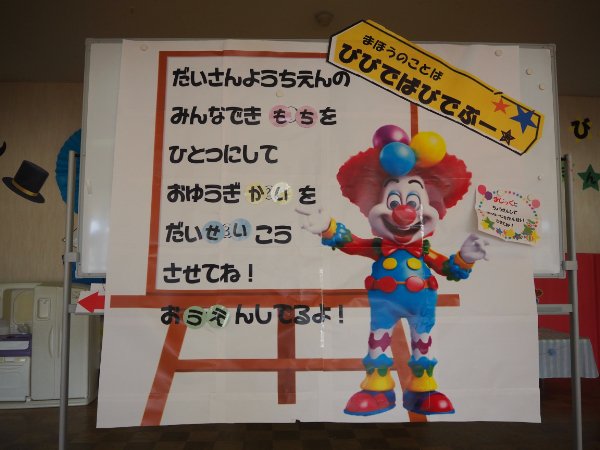 まほうのことは
びびでばびでぶー
だいさんようちえんの
みんなできもちを
ひとつにして
おゆうぎかいを
だいせいこう
させてね！
おうえんしてるよ！
まじっくと
び
ん